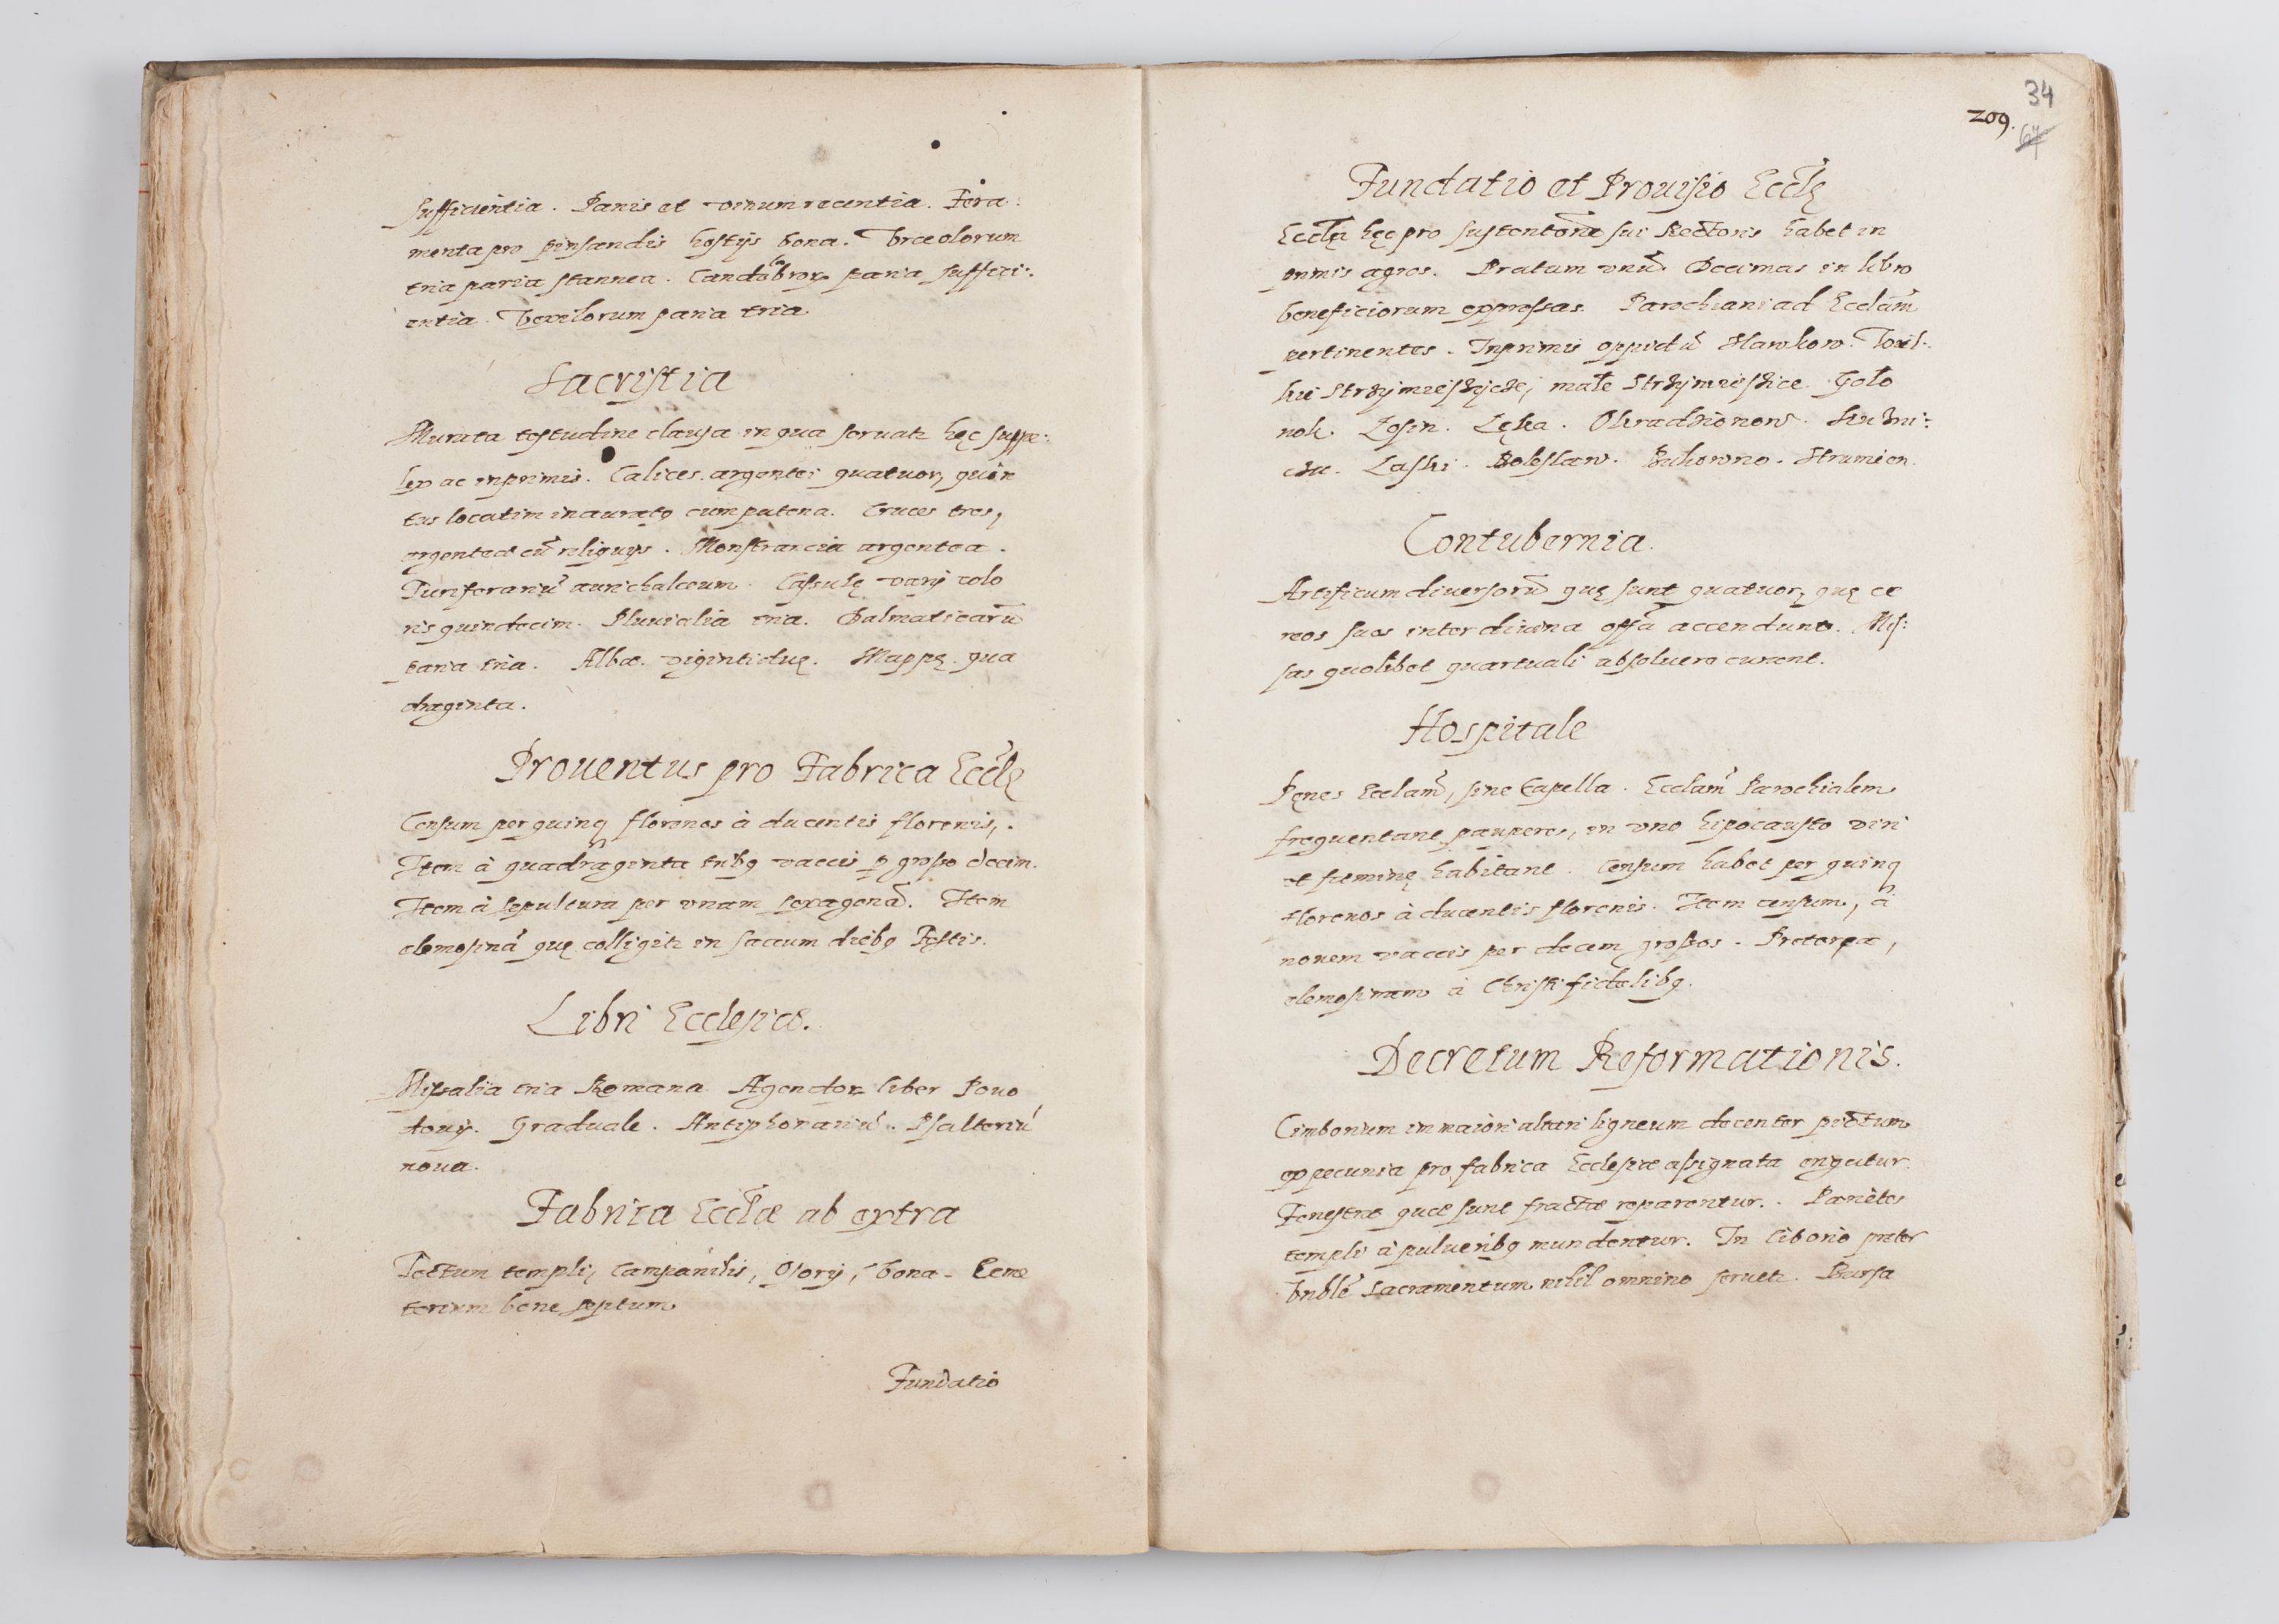 sufficientia. Panis et vinum recentia. Fera:
menta pro pinsandis hostijs bona. Vrceolorum
tria paria stannea. Candelabror paria suffici:
entia. Vexilorum paria tria
Sacristia
Murata testudine clausa in qua seruatr hęc suppe:
lex ac inprimis. Calices argentei quatuor, quin
tus locatim inauratq cum patena. Cruces tres,
argenteæ cū reliquijs. Monstrancia argentea.
Turiferariū aurichalceum. Casulę varij colo
ris quindecim. Pluuialia tria. Dalmaticarū
paria tria. Albæ viginti duę. Mappę qua
draginta.
Prouentus pro Fabrica Eccłę
Censum per quinq florenos à ducentis florenis,.
Item à quadraginta tribq vaccis p grosso decim.
Item à sepultura per vnam sexagenā. Item
elemosinā quę colligitr in saccum diebq Festis.
Libri Ecclesiæ.
Missalia tria Romana. Agendor liber Pouo
douij. Graduale. Antiphonariū. Psalteriū
noua.
Fabrica Eccłæ ab extra
Tectum templi, Campanilis, Osorij, bona. Ceme
terium bene septum
Fundatio
34
209.
67
Fundatio et Prouisio Eccłę
Eccłą hęc pro sustentōne sui Rectoris habet in
primis agros. Pratum vnū. Decimas in libro
beneficiorum expressas. Parochiani ad Ecclām
pertinentes. Inprimis oppidū Sławkow. Wiel:
kie Strzymieszycze, małe Strzymieszice. Goło
nok. Łosin. Lęka. Okradzionow. Kuzni:
czki. Laski. Bolesław. Bukowno. Strumien.
Contubernia.
Artificum diuersorū quę sunt quatuor, quę ce
reos suos inter diuina offā accendunt. Mis:
sas quolibet quartuali absoluere curant.
Hospitale
Penes Ecclām, sine Capella. Ecclām Parochialem
frequentant pauperes, in vno hipocausto viri
et fæminę habitant. Censum habet per quinq
florenos à ducentis florenis. Item censum, à
nouem vaccis per decem grossos. Preterea,
elemosinam à Christi fidelibq.
Decretum Reformationis.
Cimborium in maiori altari ligneum decenter pictum
ex pecunia pro fabrica Ecclesiæ assignata erigatur.
Fenestræ quæ sunt fractæ reparentur. Parietes
templi à pulueribq mundentur. In Ciborio præter
Vnble Sacramentum nihil omnino seruetr. Bursa